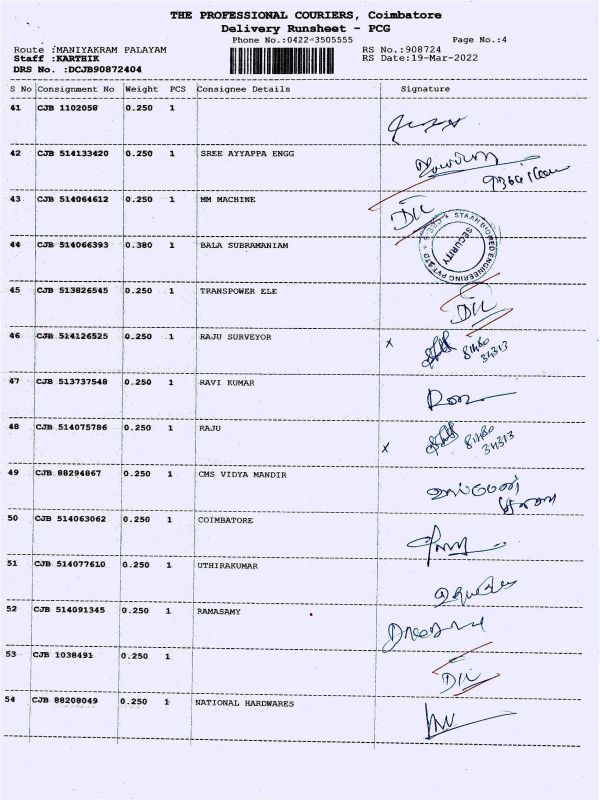 THE PROFESSIONAL COURIERS, Coimbatore
Delivery Runsheet - PCG
Phone No.:0422-3505555 Page No.:4
Route :MANIYAKRAM PALAYAM RS No.:908724
Staff :KARTHIK RS Date:19-Mar-2022
DRS No. :DCJB90872404
S No Consignment No Weight PCS Consignee Details Signature
41 CJB 1102058 0.250 1
42 CJB 514133420 0.250 1 SREE AYYAPPA ENGG
43 CJB 514064612 0.250 1 MM MACHINE
44 CJB 514066393 0.380 1 BALA SUBRAMANIAM
STAAN BIOMED ENGINEERING PVT LTD
SECURITY
45 CJB 513826545 0.250 1 TRANSPOWER ELE
46 CJB 514126525 0.250 1 RAJU SURVEYOR x 81480
34313
47 CJB 513737548 0.250 1 RAVI KUMAR
48 CJB 514075786 0.250 1 RAJU x 81480
34313
49 CJB 88294867 0.250 1 CMS VIDYA MANDIR
50 CJB 514063062 0.250 1 COIMBATORE
51 CJB 514077610 0.250 1 UTHIRAKUMAR
52 CJB 514091345 0.250 1 RAMASAMY
53 CJB 1038491 0.250 1
54 CJB 88208049 0.250 1 NATIONAL HARDWARES